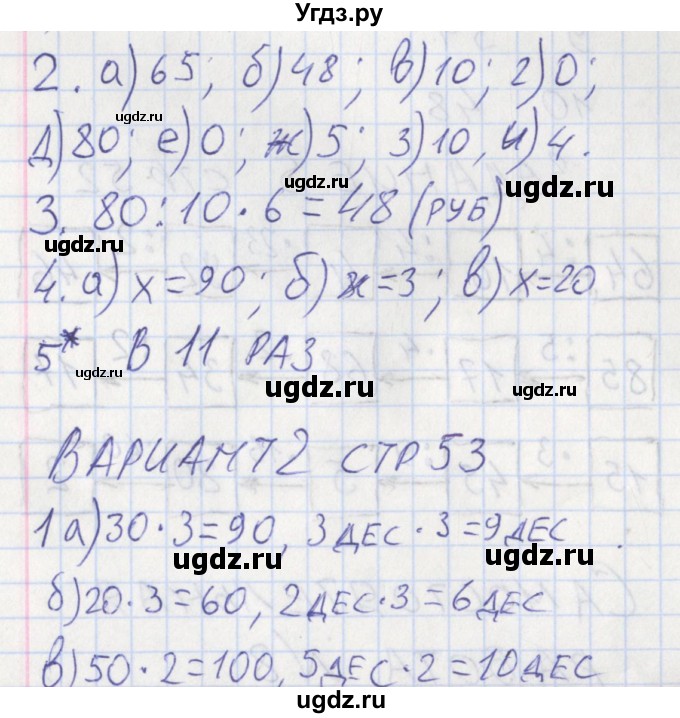 Угдз.ру
2. а) 65; б) 48; в) 10; г) 0;
д) 80; е) 0; ж) 5; з) 10, и) 4.
3. 80 : 10 · 6 = 48 (РУБ)
4. а) x = 90; б) x = 3; в) x = 20
5* В 11 РАЗ
ВАРИАНТ 2 СТР 53
1 а) 30 · 3 = 90, 3 ДЕС · 3 = 9 ДЕС
б) 20 · 3 = 60, 2 ДЕС · 3 = 6 ДЕС
в) 50 · 2 = 100, 5 ДЕС · 2 = 10 ДЕС
ugdz.ru
ugdz.ru
ugdz.ru
ugdz.ru
ugdz.ru
ugdz.ru
ugdz.ru
ugdz.ru
ugdz.ru
ugdz.ru
ugdz.ru
ugdz.ru